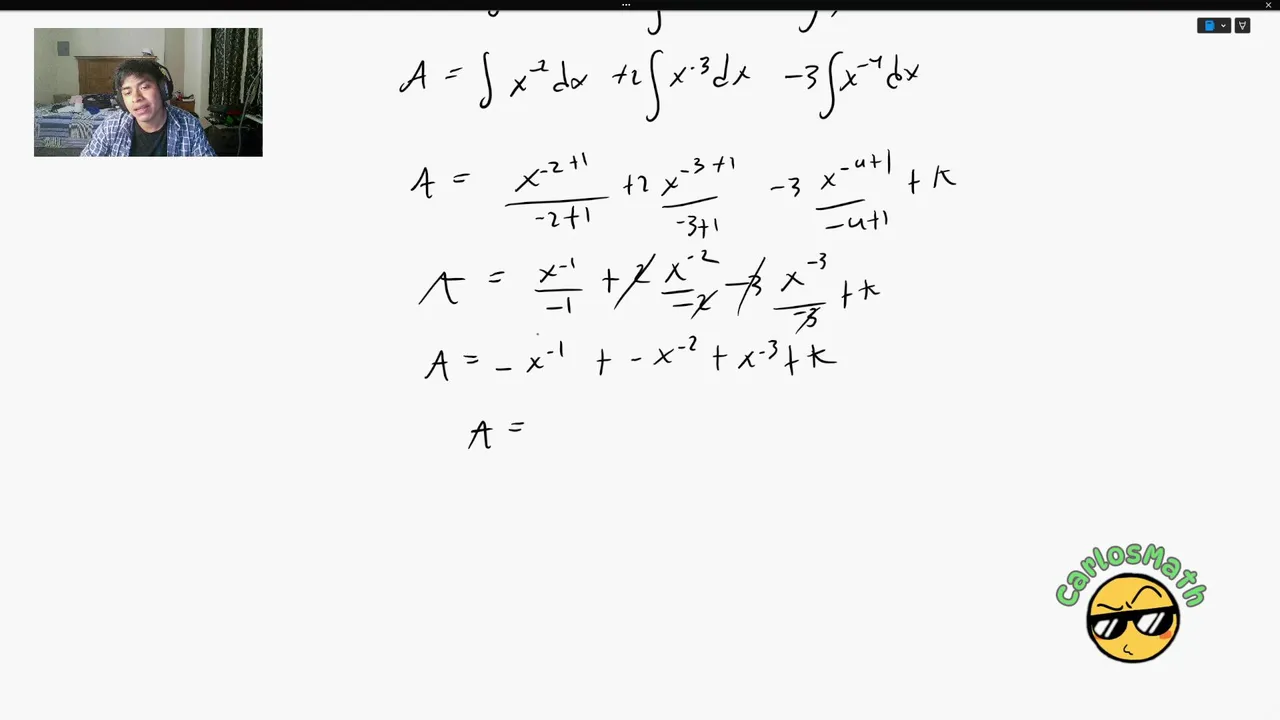 A = ∫ x⁻² dx +2 ∫ x⁻³ dx -3 ∫ x⁻⁴ dx
A = x⁻²⁺¹/-2+1 +2 x⁻³⁺¹/-3+1 -3 x⁻⁴⁺¹/-4+1 + k
A = x⁻¹/-1 + 2 x⁻²/-2 -3 x⁻³/-3 + k
A = - x⁻¹ + - x⁻² + x⁻³ + k
A =
CarlosMath